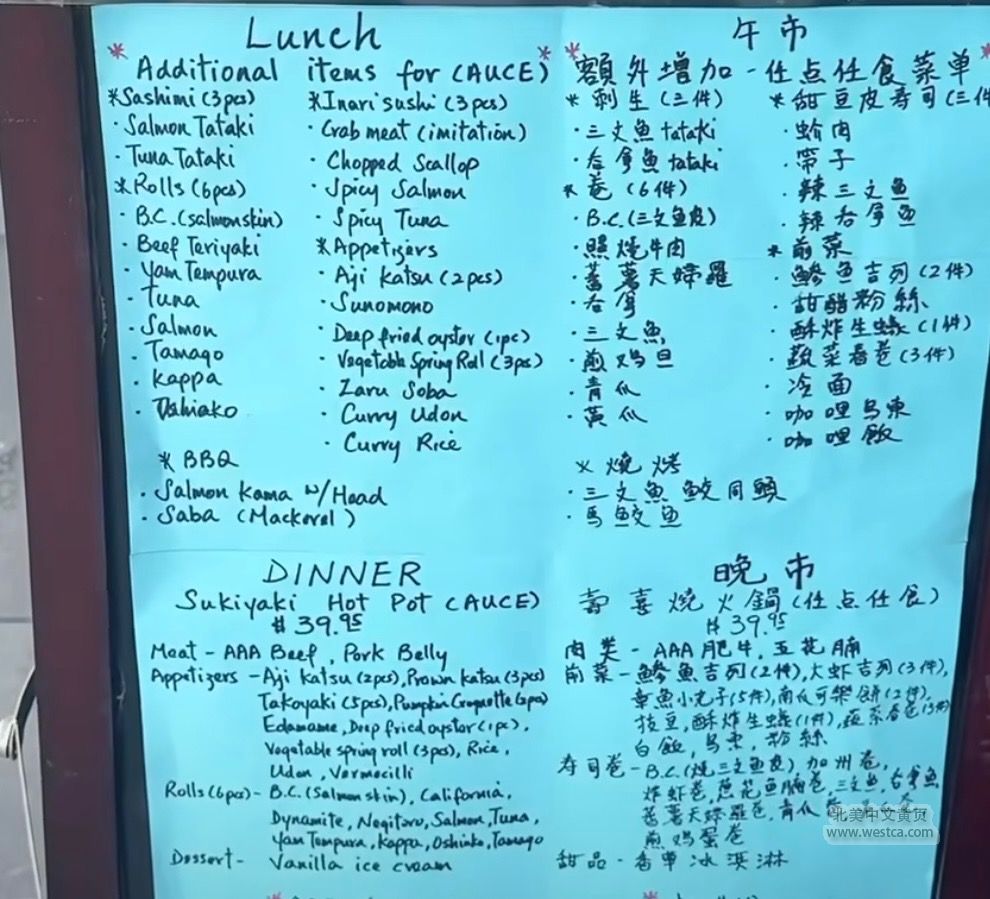 Lunch
Additional items for (AUCE)
*Sashimi (3pcs)
· Salmon Tataki
· Tuna Tataki
*Rolls (6pcs)
· B.C. (salmonskin)
· Beef Teriyaki
· Yam Tempura
· Tuna
· Salmon
· Tamago
· Kappa
· Oshinko
*Inari sushi (3pcs)
· Crab meat (imitation)
· Chopped Scallop
· Spicy Salmon
· Spicy Tuna
*Appetizers
· Aji Katsu (2pcs)
· Sunomono
· Deep fried oyster (1pc)
· Vegetable Spring Roll (3pcs)
· Zaru Soba
· Curry Udon
· Curry Rice
* BBQ
· Salmon Kama w/Head
· Saba (Mackerel)
午市
額外增加-任点任食菜单
* 刺生 (三件)
· 三文魚 tataki
· 吞拿魚 tataki
* 卷 (6件)
· B.C. (三文鱼皮)
· 照燒牛肉
· 蕃薯天婦羅
· 吞拿
· 三文魚
· 煎鸡旦
· 青瓜
· 黃瓜
* 甜豆皮寿司 (三件
· 蛤肉
· 带子
· 辣三文鱼
· 辣吞拿鱼
* 前菜
· 鰺魚吉列 (2件)
· 甜醋粉絲
· 酥炸生蠔 (1件)
· 蔬菜春卷 (3件)
· 冷面
· 咖哩烏東
· 咖哩飯
* 燒烤
· 三文魚鮫同頭
· 馬鮫鱼
DINNER
Sukiyaki Hot Pot (AUCE)
$39.95
Meat - AAA Beef, Pork Belly
Appetizers - Aji Katsu (2pcs), Prawn Katsu (3pcs)
Takoyaki (5pcs), Pumpkin Croquette (2pcs)
Edamame, Deep fried oyster (1pc),
Vegetable spring roll (3pcs), Rice,
Udon, Vermecilli
Rolls (6pcs) - B.C. (Salmon skin), California,
Dynamite, Negitoro, Salmon, Tuna,
Yam Tempura, Kappa, Oshinko, Tamago
Dessert - Vanilla ice cream
晚市
壽喜燒火鍋 (任点任食)
$39.95
肉类 - AAA肥牛, 五花腩
前菜 - 鰺魚吉列 (2件), 大虾吉列 (3件),
章魚小丸子 (5件), 南瓜可樂餅 (2件),
枝豆, 酥炸生蠔 (1件), 蔬菜春卷 (3件)
白飯, 烏東, 粉絲
寿司卷 - B.C. (燒三文魚皮) 加州卷,
炸虾卷, 葱花鱼腩卷, 三文魚, 吞拿魚
蕃薯天婦羅卷, 青瓜
煎鸡蛋卷
甜品 - 香草冰淇淋
北美中文黄页
www.westca.com